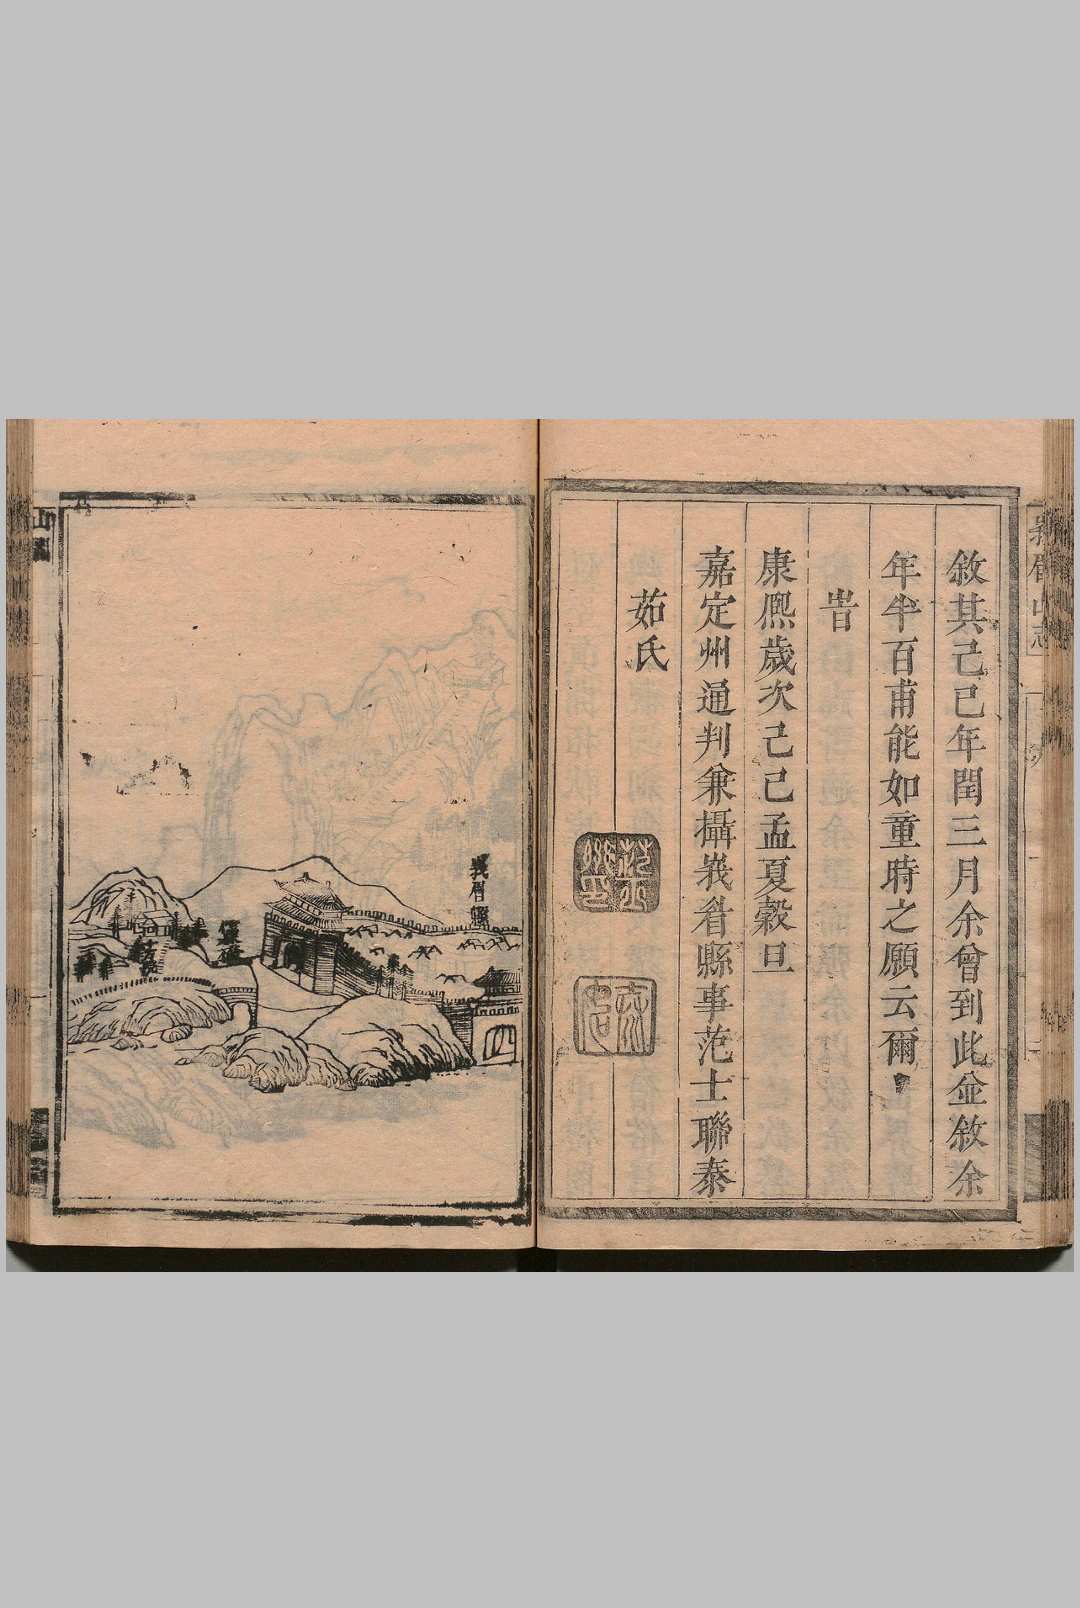 敘其己巳年閏三月余曾到此並敘余
年半百甫能如童時之願云爾
旹
康熙歲次己巳孟夏穀旦
嘉定州通判兼攝峩眉縣事范士聯泰
茹氏
峩眉山志
峩眉縣